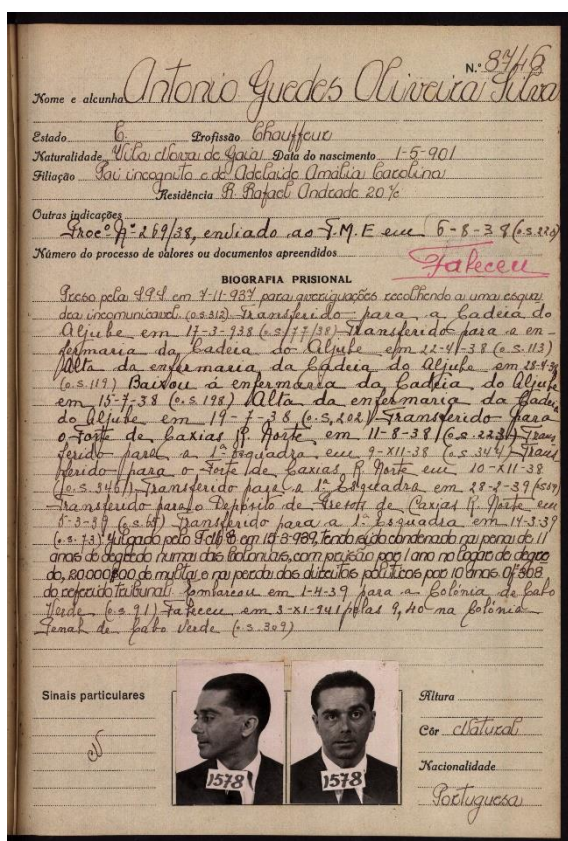 N.º 8746
Nome e alcunha Antonio Guedes Oliveira Silva
Estado C. Profissão Chauffeur
Naturalidade Vila Nova de Gaia Data do nascimento 1-5-901
Filiação Pai incognito e de Adelaide Amalia Carolina
Residência R. Rafael Andrade 20 %
Outras indicações
Procº Nº 269/38, enviado ao T.M.E em 6-8-38 (o.s.220)
Número do processo de valores ou documentos apreendidos
Faleceu
BIOGRAFIA PRISIONAL
Preso pela SPS em 7-11-937 para averiguações recolhendo a uma esqua
dra incomunicavel. (o.s.312) Transferido para a Cadeia do
Aljube em 17-3-938 (o.s./77/38) Transferido para a en-
fermaria da Cadeia do Aljube em 22-4-38 (o.s.113)
Alta da enfermaria da Cadeia do Aljube em 28-4-38
(o.s.119) Baixou á enfermaria da Cadeia do Aljube
em 15-7-38 (o.s.198) Alta da enfermaria da Cadeia
do Aljube em 19-7-38 (o.s.202) Transferido para
o Forte de Caxias R. Norte, em 11-8-38 (o.s.223) Trans
ferido para a 1ª esquadra em 9-XII-38 (o.s.344) Trans
ferido para o Forte de Caxias R. Norte em 10-XII-38
(o.s.346) Transferido para a 1ª Esquadra em 28-2-39
Transferido para o Depósito de Presos de Caxias R. Norte em
(o.s.65) Transferido para a 1ª esquadra em 14-3-39
(o.s.73) Julgado pelo em 15-3-939, tendo sido condenado na pena de 11
anos de degredo numa das Colonias, com prisão por 1 ano no logar do degre
do, de multa e na perda dos direitos politicos por 10 anos. Ofº 308
do referido Tribunal. Embarcou em 1-4-39 para a Colónia de Cabo
Verde (o.s.91) Faleceu em 3-XI-941 pelas 9,40 na Colónia
Penal de Cabo Verde (o.s.309)
Sinais particulares
N
1578
1578
Altura
Côr Natural
Nacionalidade
Portuguesa